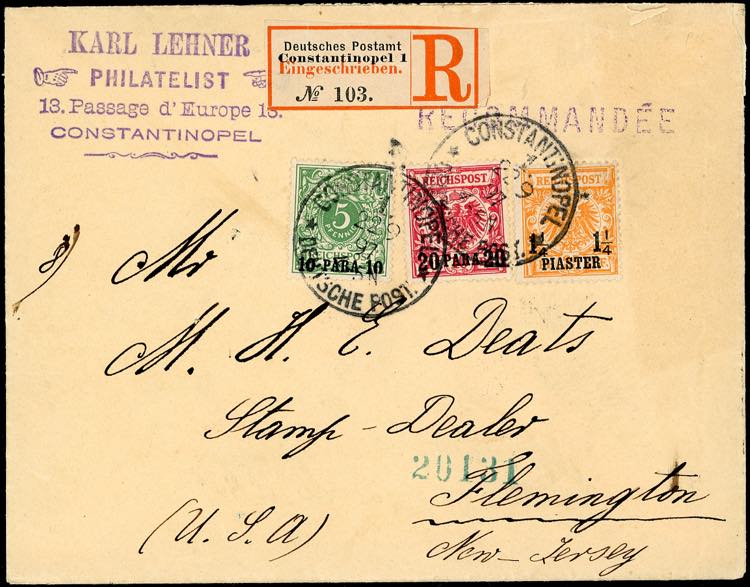 KARL LEHNER
PHILATELIST
13. Passage d'Europe 13.
CONSTANTINOPEL
Deutsches Postamt
Constantinopel 1
Eingeschrieben.
№ 103.
R
RECOMMANDÉE
CONSTANTINOPEL 1
DEUTSCHE POST.
CONSTANTINOPEL 1
5
PFENNIG
10 PARA 10
REICHSPOST
20 PARA 20
REICHSPOST
1¼ 1¼
PIASTER
Mr
M. H. E. Deats
Stamp-Dealer
20131
Flemington
(U.S.A)
New-Jersey